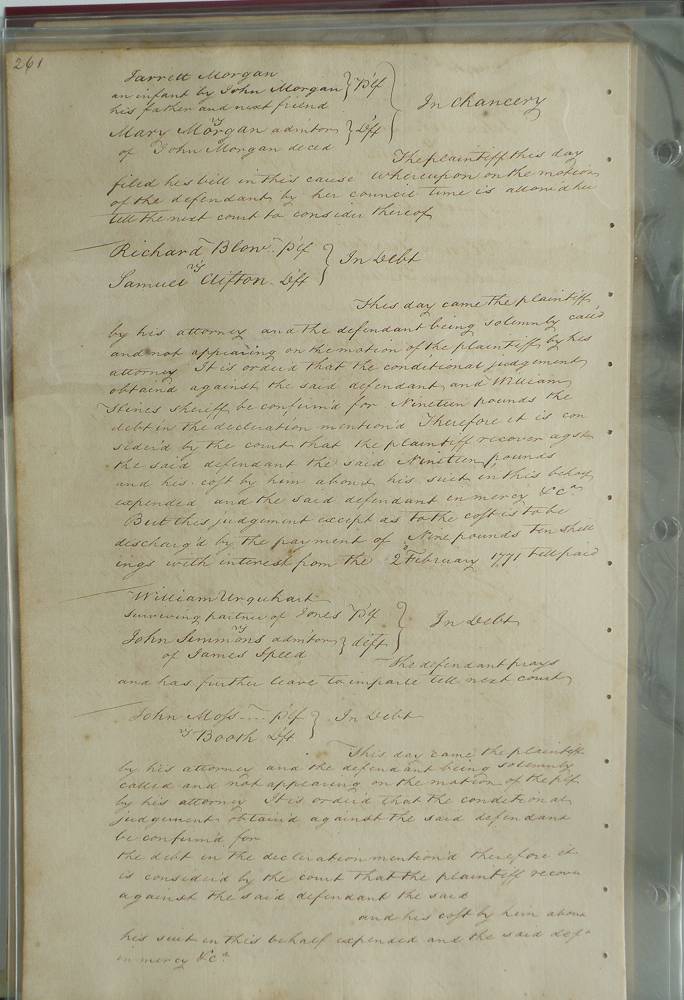 261
Jarrett Morgan
an infant by John Morgan } Plf
his father and next friend
vs
Mary Morgan admitors } Dft
of John Morgan deced
In Chancery
The plaintiff this day
filed his bill in this cause whereupon on the motion
of the defendant by her council time is allowed her
till the next court to consider thereof
Richard Blow Plf
vs
Samuel Clifton Dft } In Debt
This day came the plaintiff
by his attorney and the defendant being solemnly calld
and not appearing on the motion of the plaintiff by his
attorney It is orderd that the conditional judgement
obtaind against the said defendant and William
Hines sheriff be confirm'd for Nineteen pounds the
debt in the decleration mention'd Therefore it is con
siderd by the court that the plaintiff recover agst
the said defendant the said Nineteen pounds
and his cost by him about his suit in this behalf
expended and the said defendant in mercy &ca
But this judgement except as to the cost is to be
discharg'd by the payment of Nine pounds ten shill
ings with interest from the 2d February 1771 till paid
William Urquhart
surviving partner of Jones Plf
vs
John Simmons admitor } deft
of James Speed
In Debt
The defendant prays
and has further leave to imparle till next court
John Moss Plf } In Debt
vs Booth Dft
This day came the plaintiff
by his attorney and the defendant being solemnly
called and not appearing on the motion of the plf
by his attorney It is orderd that the conditional
judgement obtain'd against the said defendant
be confirm'd for
the debt in the decleration mention'd therefore it
is considerd by the court that the plaintiff recover
against the said defendant the said
and his cost by him about
his suit in this behalf expended and the said deft
in mercy &ca